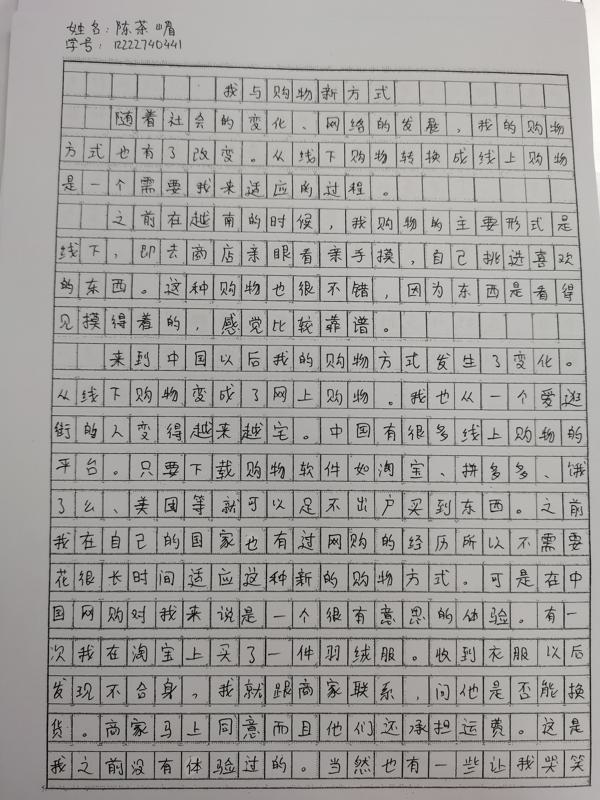 姓名：陈茶嵋
学号：12222740441
我与购物新方式
随着社会的变化、网络的发展，我的购物
方式也有了改变。从线下购物转换成线上购物
是一个需要我来适应的过程。
之前在越南的时候，我购物的主要形式是
线下，即去商店亲眼看亲手摸，自己挑选喜欢
的东西。这种购物也很不错，因为东西是看得
见摸得着的，感觉比较靠谱。
来到中国以后我的购物方式发生了变化。
从线下购物变成了网上购物。我也从一个爱逛
街的人变得越来越宅。中国有很多线上购物的
平台。只要下载购物软件如淘宝、拼多多、饿
了么、美团等就可以足不出户买到东西。之前
我在自己的国家也有过网购的经历所以不需要
花很长时间适应这种新的购物方式。可是在中
国网购对我来说是一个很有意思的体验。有一
次我在淘宝上买了一件羽绒服。收到衣服以后
发现不合身，我就跟商家联系，问他是否能换
货。商家马上同意而且他们还承担运费。这是
我之前没有体验过的。当然也有一些让我哭笑